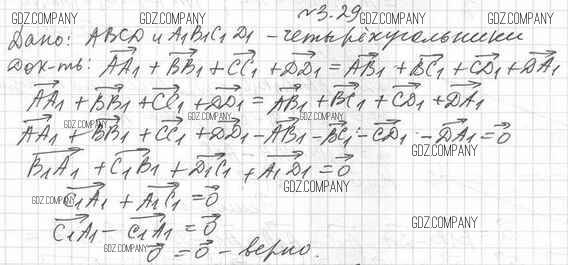 GDZ.COMPANY GDZ.COMPANY №3.29 GDZ.COMPANY GDZ.COMPANY
Дано: ABCD и A₁B₁C₁D₁ - четырёхугольники
Док-ть: AA₁ + BB₁ + CC₁ + DD₁ = AB₁ + BC₁ + CD₁ + DA₁
AA₁ + BB₁ + CC₁ + DD₁ = AB₁ + BC₁ + CD₁ + DA₁
GDZ.COMPANY GDZ.COMPANY
AA₁ + BB₁ + CC₁ + DD₁ - AB₁ - BC₁ - CD₁ - DA₁ = 0
GDZ.COMPANY
B₁A₁ + C₁B₁ + D₁C₁ + A₁D₁ = 0
GDZ.COMPANY
GDZ.COMPANY C₁A₁ + A₁C₁ = 0
C₁A₁ - C₁A₁ = 0 GDZ.COMPANY
GDZ.COMPANY 0 = 0 - верно.